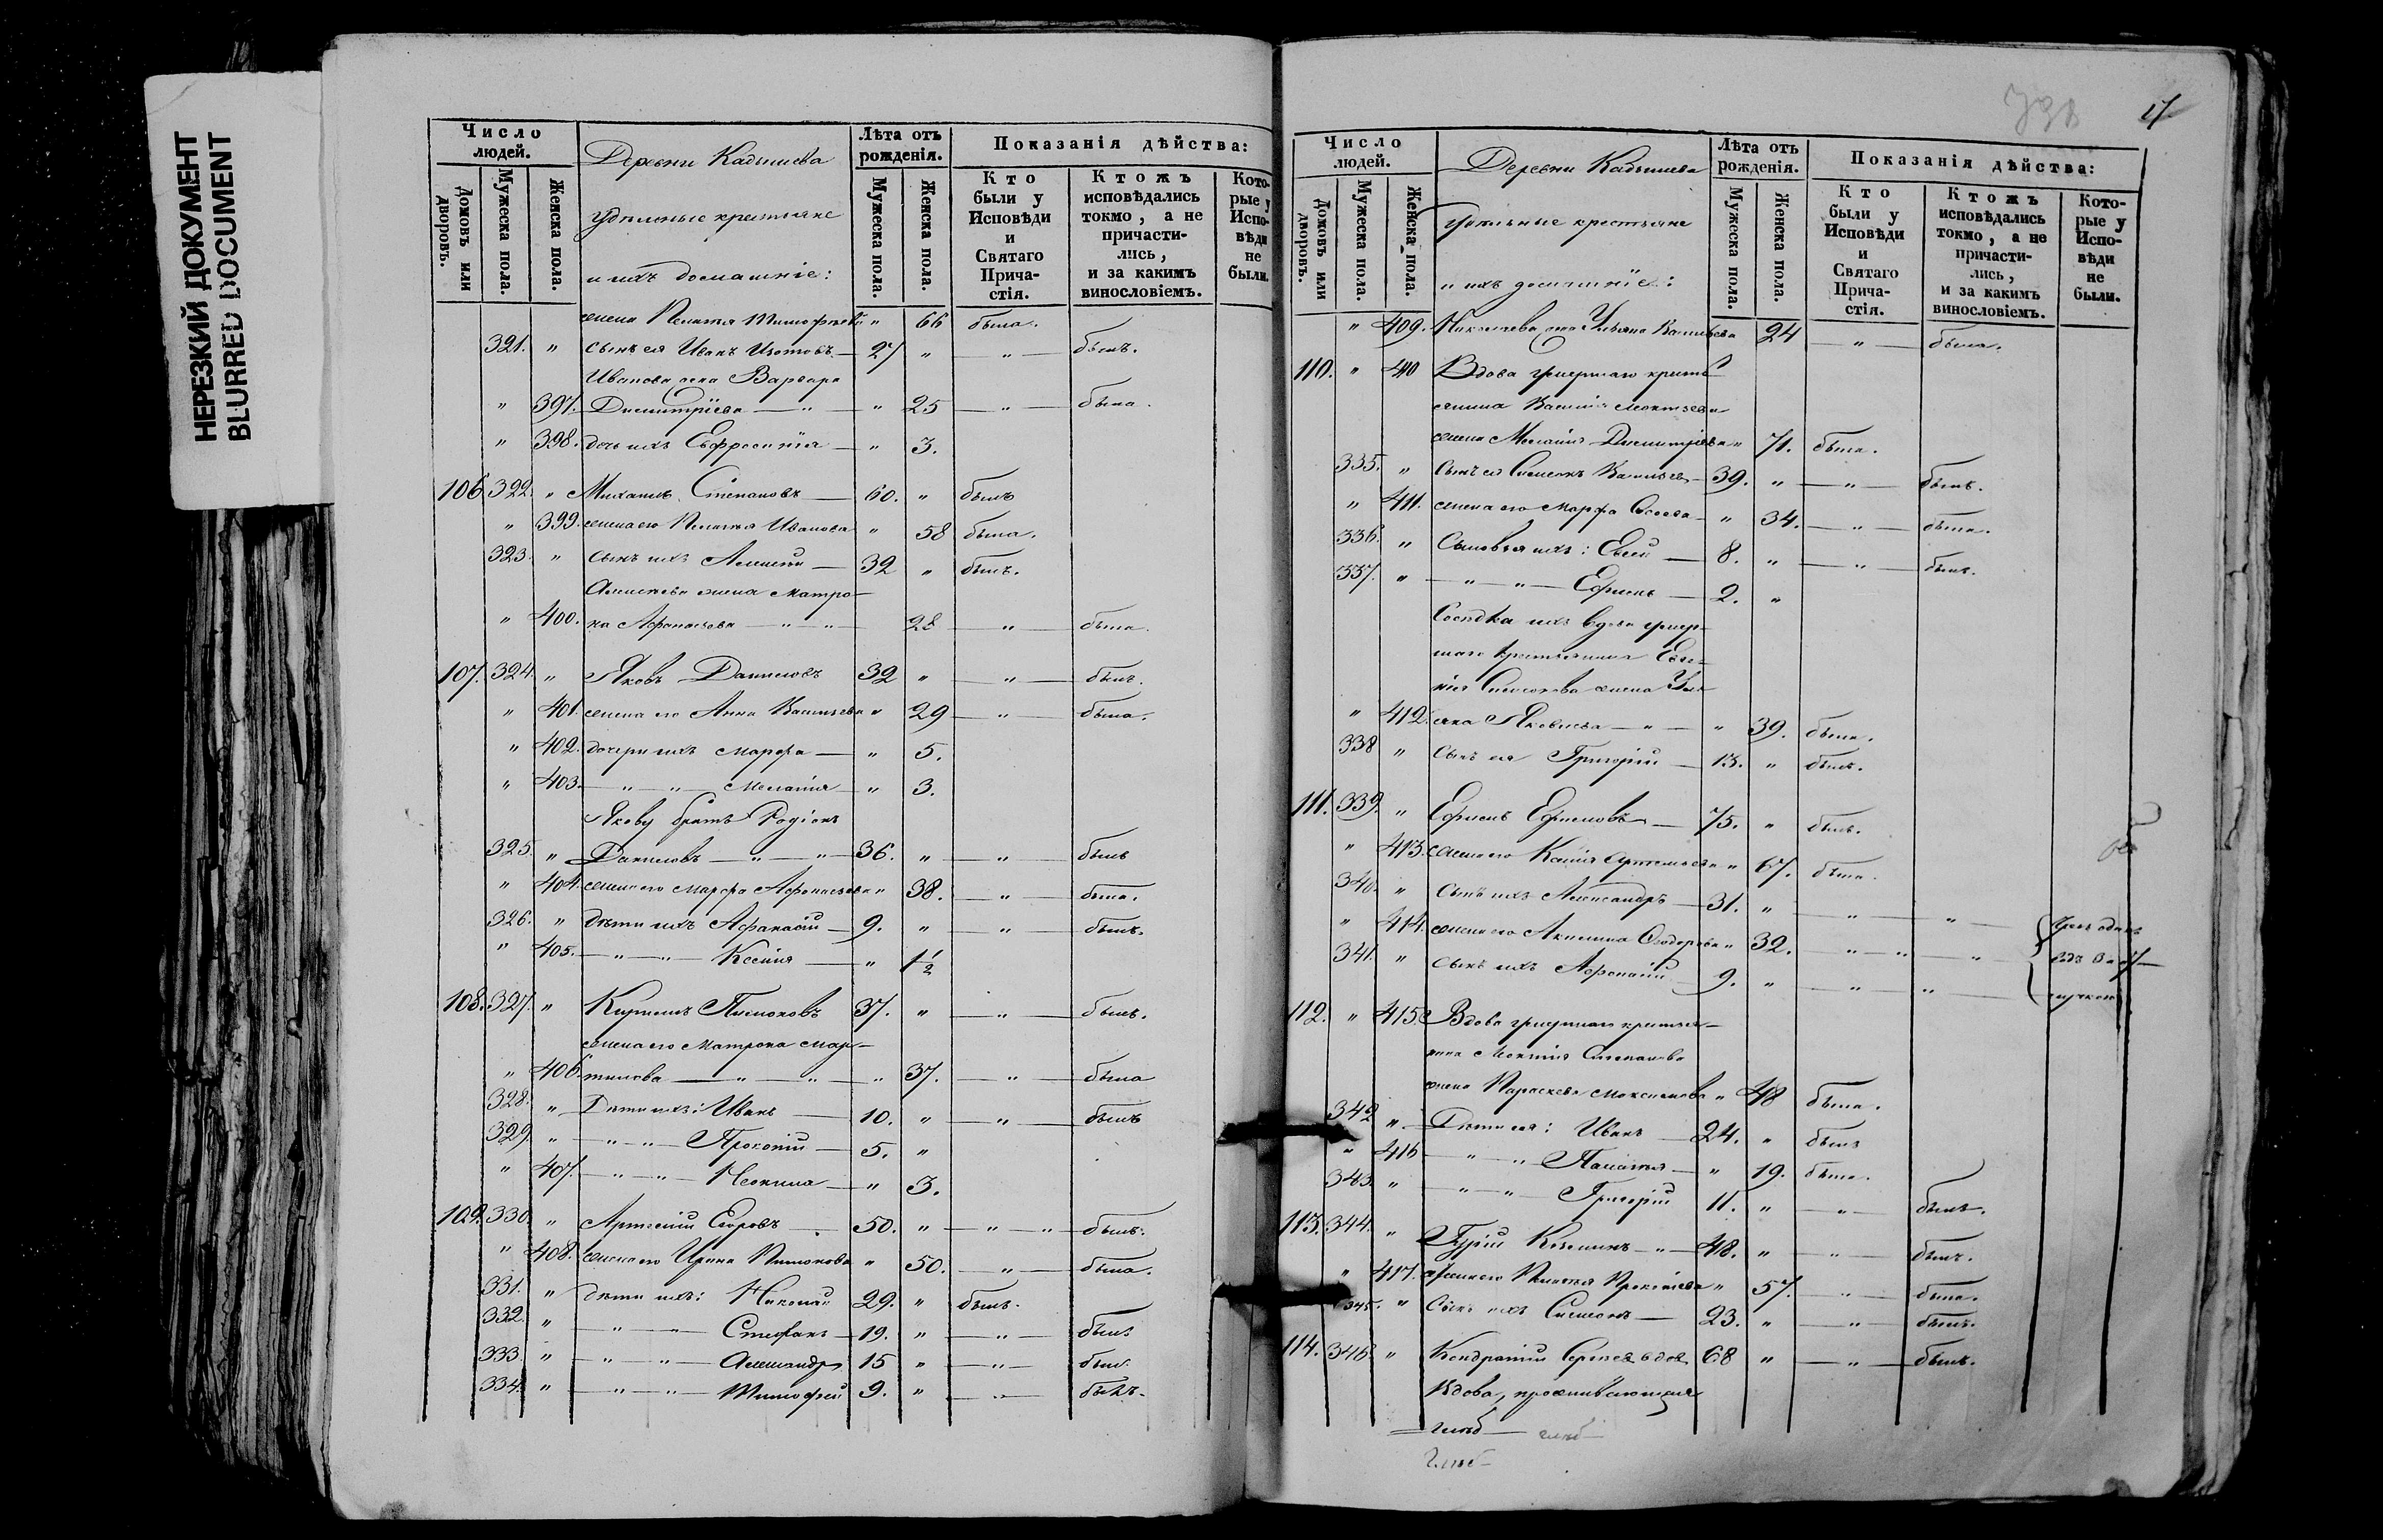 НЕРЕЗКИЙ ДОКУМЕНТ
BLURRED DOCUMENT
Число людей.
Домовъ или дворовъ.
Мужеска пола.
Женска пола.
Деревни Кадышева
удѣльные крестьяне
и ихъ домашніе:
Лѣта отъ рожденія.
Мужеска пола.
Женска пола.
Показанія дѣйства:
Кто были у Исповѣди и Святаго Прича-стія.
Ктожъ исповѣдались токмо, а не причасти-лись, и за какимъ винословіемъ.
Кото-рые у Испо-вѣди не были.
жена Пелагія Тимофѣева " 66 была.
321. " сынъ ея Иванъ Изотовъ — 27 " — " — былъ.
Иванова жена Варвара
" 397. Димитріева — " — " 25 — " — была.
" 398. дочь ихъ Евфросинія — " 3.
106. 322. " Михаилъ Степановъ — 60. " былъ
" 399. жена его Пелагія Иванова " 58 была.
323. " сынъ ихъ Алексѣй — 32 " былъ.
Алексѣева жена Матро-
" 400. на Афанасьева — " — " — 28 — " — была.
107. 324. " Яковъ Даниловъ 32 " — " — былъ.
" 401. жена его Анна Васильева " 29 — " — была.
" 402. дочери ихъ Марфа — " 5.
" 403. — " — " — Меланія — " 3.
Якову братъ Родіонъ
325. " Даниловъ — " — " — 36. " — " — былъ
" 404. жена его Марфа Афанасьева " 38. — " — была.
326. " дѣти ихъ Афанасій — 9. " — " — былъ.
" 405. — " — " — Ксенія — " 1½
108. 327. " Кириллъ Пимоновъ 37. " — " — былъ.
жена его Матрона Мар-
" 406. тинова — " — " — " 37. — " — была
328. " Дѣти ихъ: Иванъ — 10. " — " — былъ
329. " — " — " — Прокопій — 5. "
" 407. — " — " — Неонила — " 3.
109. 330. " Арсеній Егоровъ — 50. " — " — " — былъ.
" 408. жена его Ирина Пимонова " 50. — " — была.
331. " дѣти ихъ: Николай 29. " былъ.
332. " — " — " — Стефанъ — 19. " — " — былъ
333. " — " — " — Александръ 15 " — " — былъ.
334. " — " — " — Тимофей 9. " — " — былъ.
Число людей.
Домовъ или дворовъ.
Мужеска пола.
Женска пола.
Деревни Кадышева
удѣльные крестьяне
и ихъ домашніе:
Лѣта отъ рожденія.
Мужеска пола.
Женска пола.
Показанія дѣйства:
Кто были у Исповѣди и Святаго Прича-стія.
Ктожъ исповѣдались токмо, а не причасти-лись, и за какимъ винословіемъ.
Кото-рые у Испо-вѣди не были.
" 409. Николаева жена Ульяна Васильева 24 — " — была.
110. " 410 Вдова умершаго кресть-
янина Василія
жена Меланія Димитріева " 71. была.
335. " Сынъ ея Симеонъ Васильевъ — 39. " — " — былъ.
" 411. жена его Марфа — " 34. — " — была.
336. " Сыновья ихъ: Евсей — 8. " — " — былъ.
337. " — " — " — Ефимъ — 2. "
Сосѣдка ихъ вдова умер-
шаго крестьянина Евге-
нія Симеонова жена Улі-
" 412. яна Яковлева — " — " 39. была.
338 " Сынъ ея Григорій — 13. " былъ.
111. 339. " Ефимъ Ефимовъ — 75. " былъ.
" 413. жена его Ксенія Артемьева " 67. была.
340. " Сынъ ихъ Александръ — 31. " — " — " —
" 414. жена его Акилина Ѳеодорова " 32. — " — " — "
341. " сынъ ихъ Афанасій 9. " — " — " —
112. " 415. Вдова умершаго крестья-
нина Степанова
жена Параскева Максимова " 48 была.
342 " Дѣти ея: Иванъ — 24. " былъ
" 416 — " — " Палагія — " 19. была.
343. " " — " — Григорій 11. " — " — былъ.
113. 344. " Гурій Козминъ — " — 48. " — " — былъ.
" 417. жена его Пелагія Прокопіева " 57. — " — была.
345. " Сынъ ихъ Симеонъ — 23. " — " — былъ.
114. 346. " Кондратій Сергѣевъ вдов. 68 " — " — былъ.
Вдова, проживающая